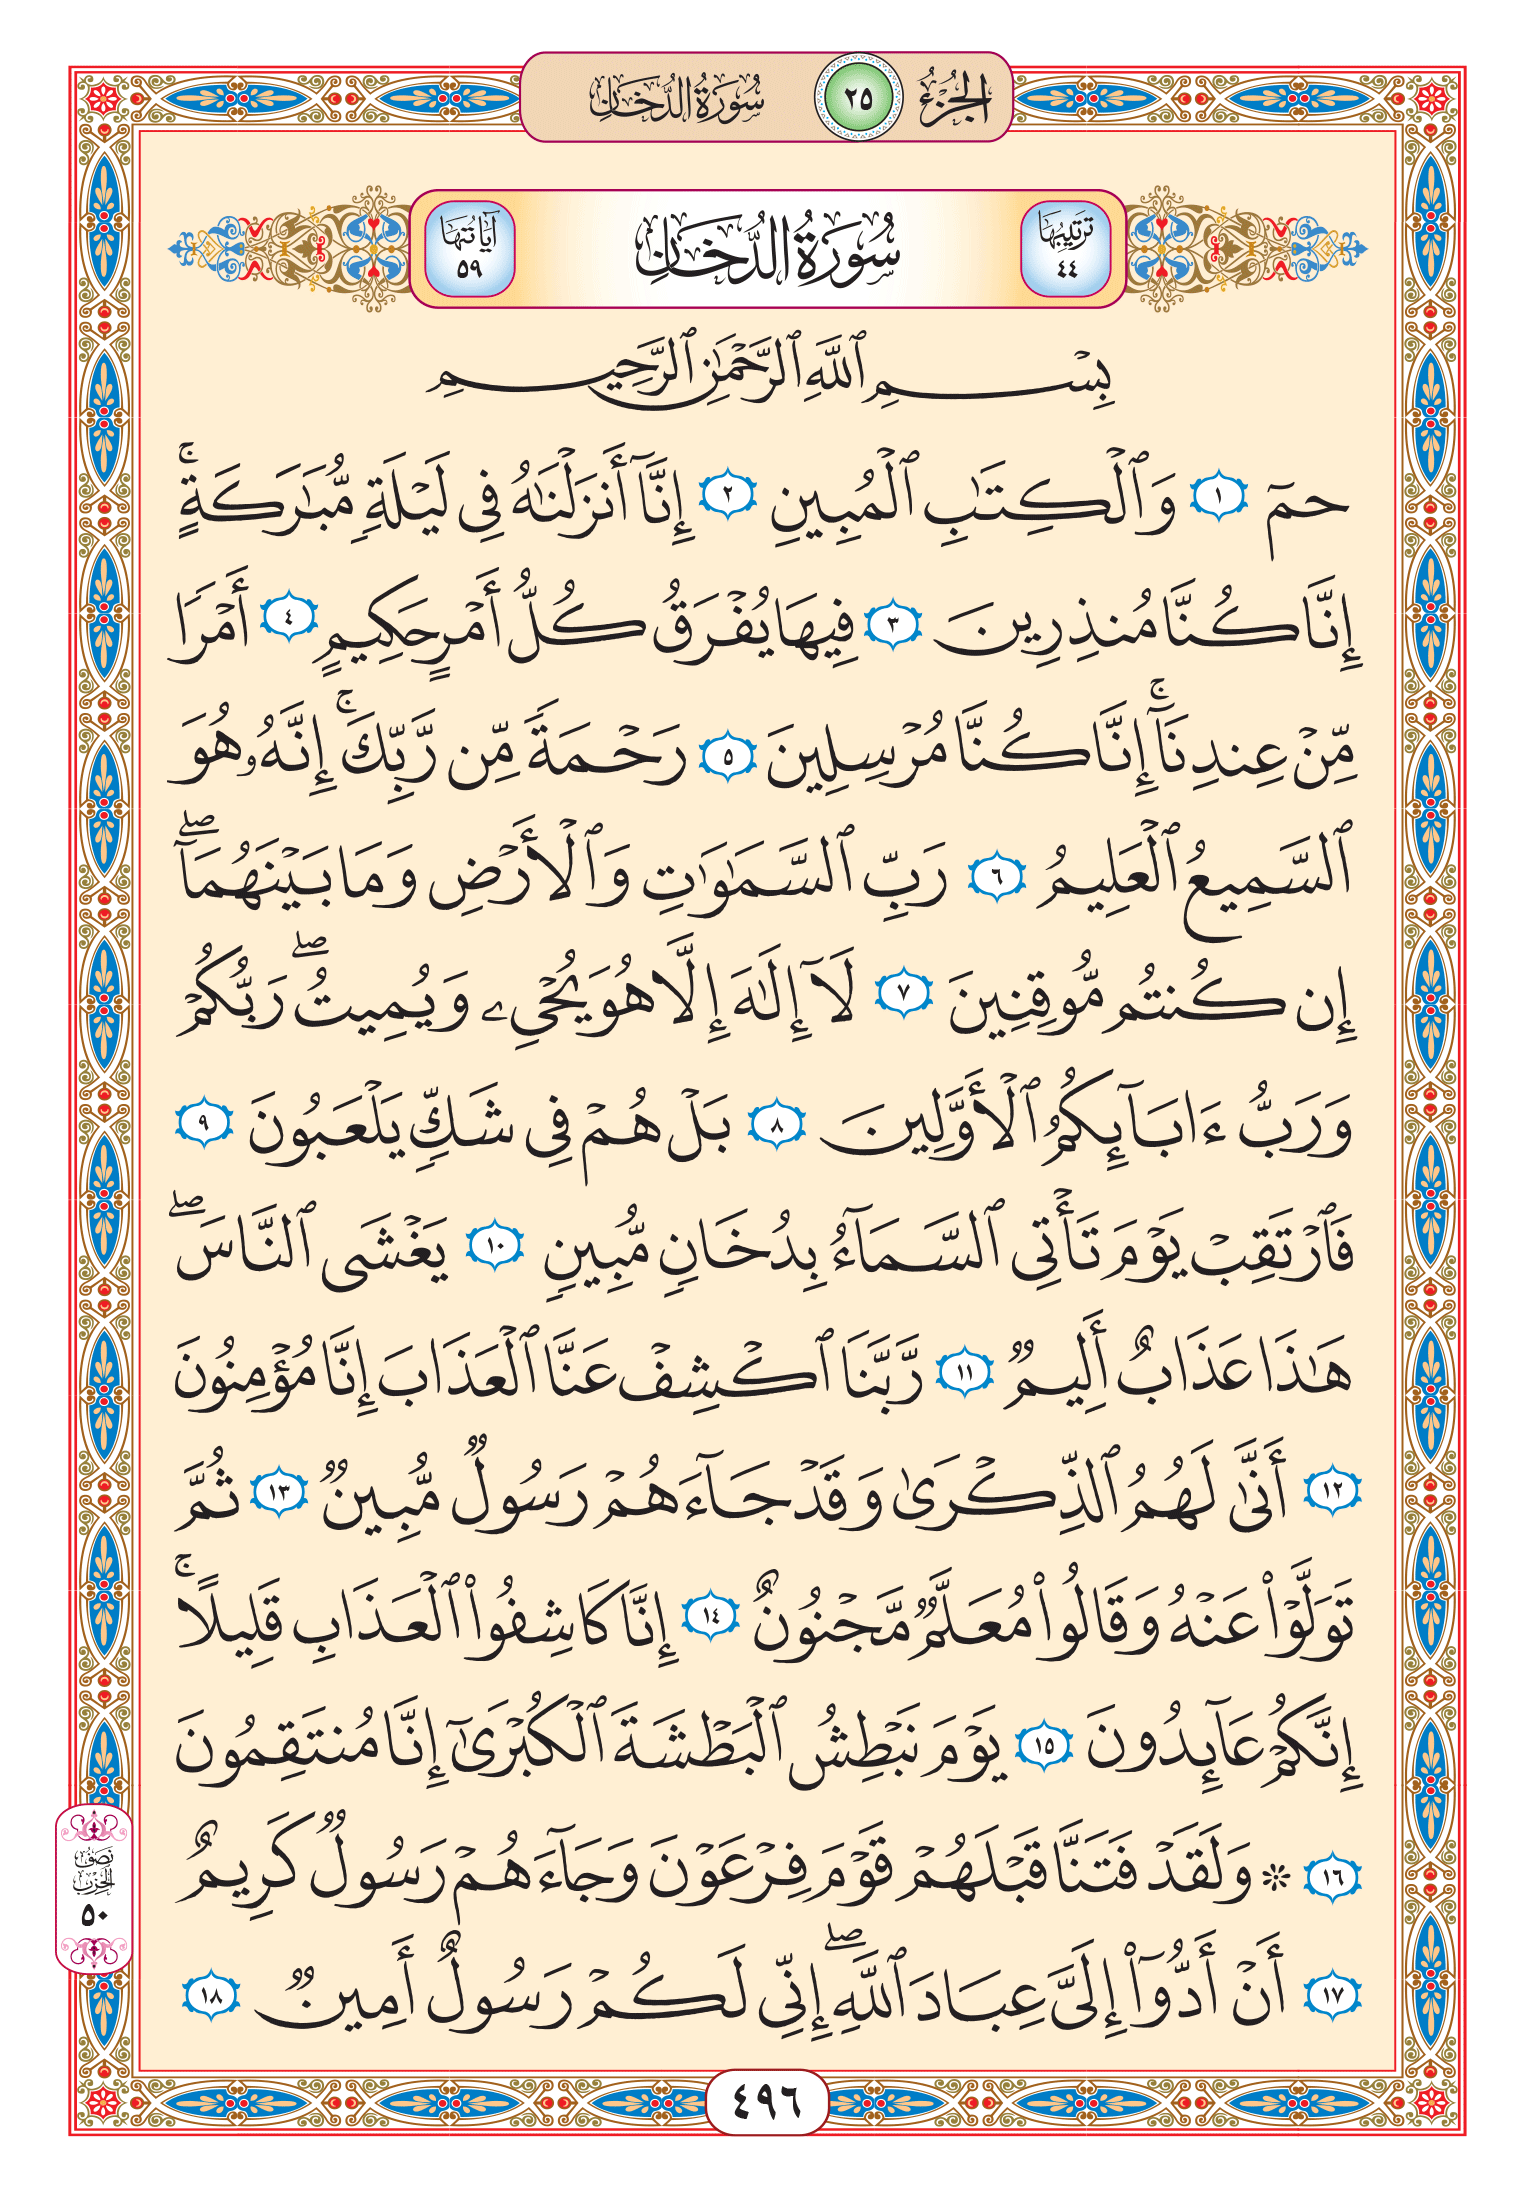 الجزء ٢٥ سورة الدخان
ترتيبها ٤٤ سُورَةُ الدُّخَانِ آياتها ٥٩
بِسْمِ ٱللَّهِ ٱلرَّحْمَٰنِ ٱلرَّحِيمِ
حمٓ ١ وَٱلْكِتَٰبِ ٱلْمُبِينِ ٢ إِنَّآ أَنزَلْنَٰهُ فِى لَيْلَةٍ مُّبَٰرَكَةٍ ۚ
إِنَّا كُنَّا مُنذِرِينَ ٣ فِيهَا يُفْرَقُ كُلُّ أَمْرٍ حَكِيمٍ ٤ أَمْرًا
مِّنْ عِندِنَآ ۚ إِنَّا كُنَّا مُرْسِلِينَ ٥ رَحْمَةً مِّن رَّبِّكَ ۚ إِنَّهُۥ هُوَ
ٱلسَّمِيعُ ٱلْعَلِيمُ ٦ رَبِّ ٱلسَّمَٰوَٰتِ وَٱلْأَرْضِ وَمَا بَيْنَهُمَآ ۖ
إِن كُنتُم مُّوقِنِينَ ٧ لَآ إِلَٰهَ إِلَّا هُوَ يُحْىِۦ وَيُمِيتُ ۖ رَبُّكُمْ
وَرَبُّ ءَابَآئِكُمُ ٱلْأَوَّلِينَ ٨ بَلْ هُمْ فِى شَكٍّ يَلْعَبُونَ ٩
فَٱرْتَقِبْ يَوْمَ تَأْتِى ٱلسَّمَآءُ بِدُخَانٍ مُّبِينٍ ١٠ يَغْشَى ٱلنَّاسَ ۖ
هَٰذَا عَذَابٌ أَلِيمٌ ١١ رَّبَّنَا ٱكْشِفْ عَنَّا ٱلْعَذَابَ إِنَّا مُؤْمِنُونَ
١٢ أَنَّىٰ لَهُمُ ٱلذِّكْرَىٰ وَقَدْ جَآءَهُمْ رَسُولٌ مُّبِينٌ ١٣ ثُمَّ
تَوَلَّوْا۟ عَنْهُ وَقَالُوا۟ مُعَلَّمٌ مَّجْنُونٌ ١٤ إِنَّا كَاشِفُوا۟ ٱلْعَذَابِ قَلِيلًا ۚ
إِنَّكُمْ عَآئِدُونَ ١٥ يَوْمَ نَبْطِشُ ٱلْبَطْشَةَ ٱلْكُبْرَىٰٓ إِنَّا مُنتَقِمُونَ
١٦ ۞ وَلَقَدْ فَتَنَّا قَبْلَهُمْ قَوْمَ فِرْعَوْنَ وَجَآءَهُمْ رَسُولٌ كَرِيمٌ
نصف الحزب ٥٠
١٧ أَنْ أَدُّوٓا۟ إِلَىَّ عِبَادَ ٱللَّهِ ۖ إِنِّى لَكُمْ رَسُولٌ أَمِينٌ ١٨
٤٩٦